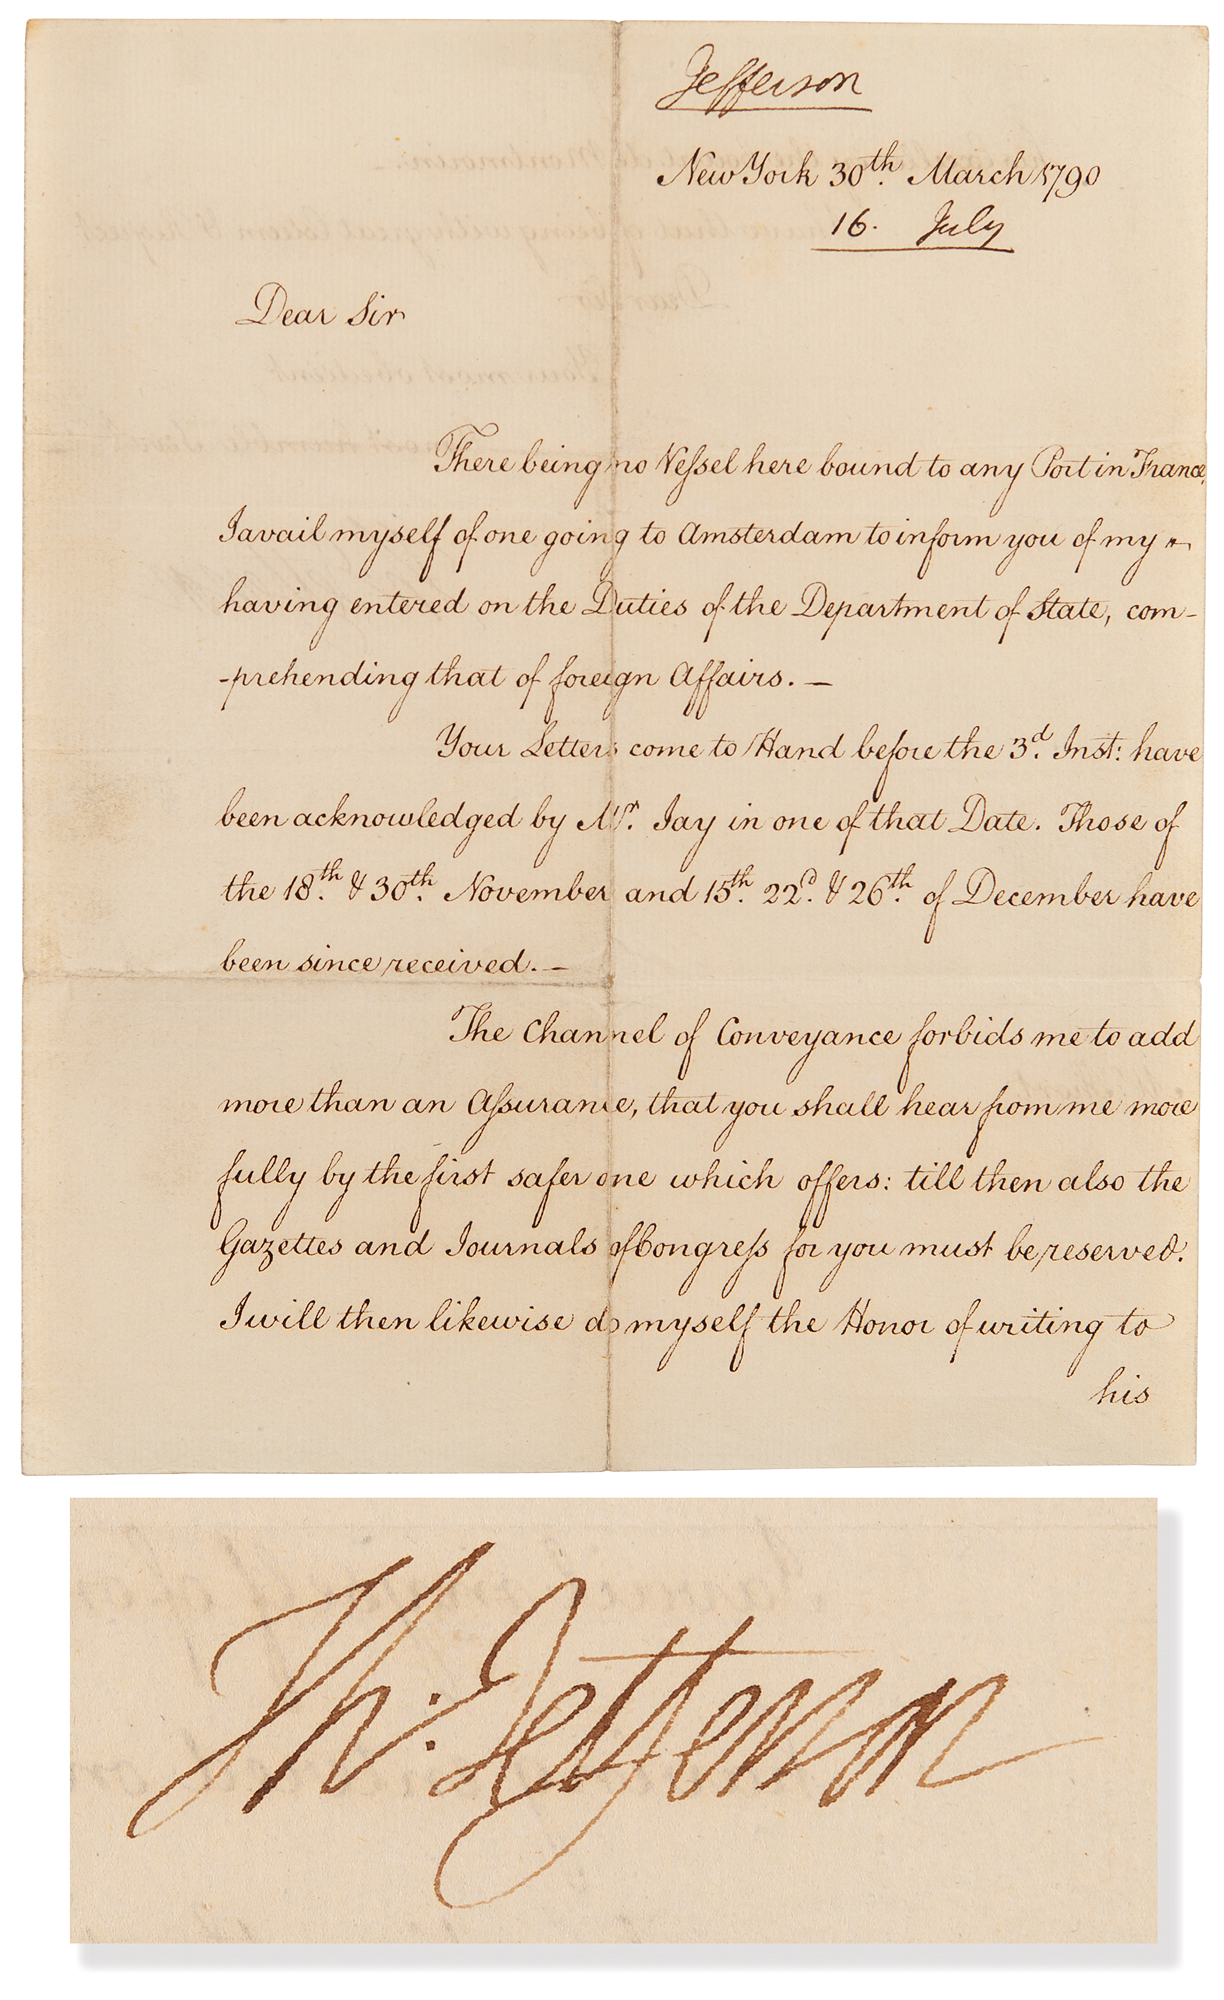 Jefferson
New York 30th. March 1790
16. July
Dear Sir
There being no Vessel here bound to any Port in France,
I avail myself of one going to Amsterdam to inform you of my
having entered on the Duties of the Department of State, com-
-prehending that of foreign Affairs. —
Your Letters come to Hand before the 3d. Inst: have
been acknowledged by Mr. Jay in one of that Date. Those of
the 18th. & 30th. November and 15th. 22d. & 26th. of December have
been since received. —
The Channel of Conveyance forbids me to add
more than an Assurance, that you shall hear from me more
fully by the first safer one which offers: till then also the
Gazettes and Journals of Congress for you must be reserved.
I will then likewise do myself the Honor of writing to
his
Th: Jefferson